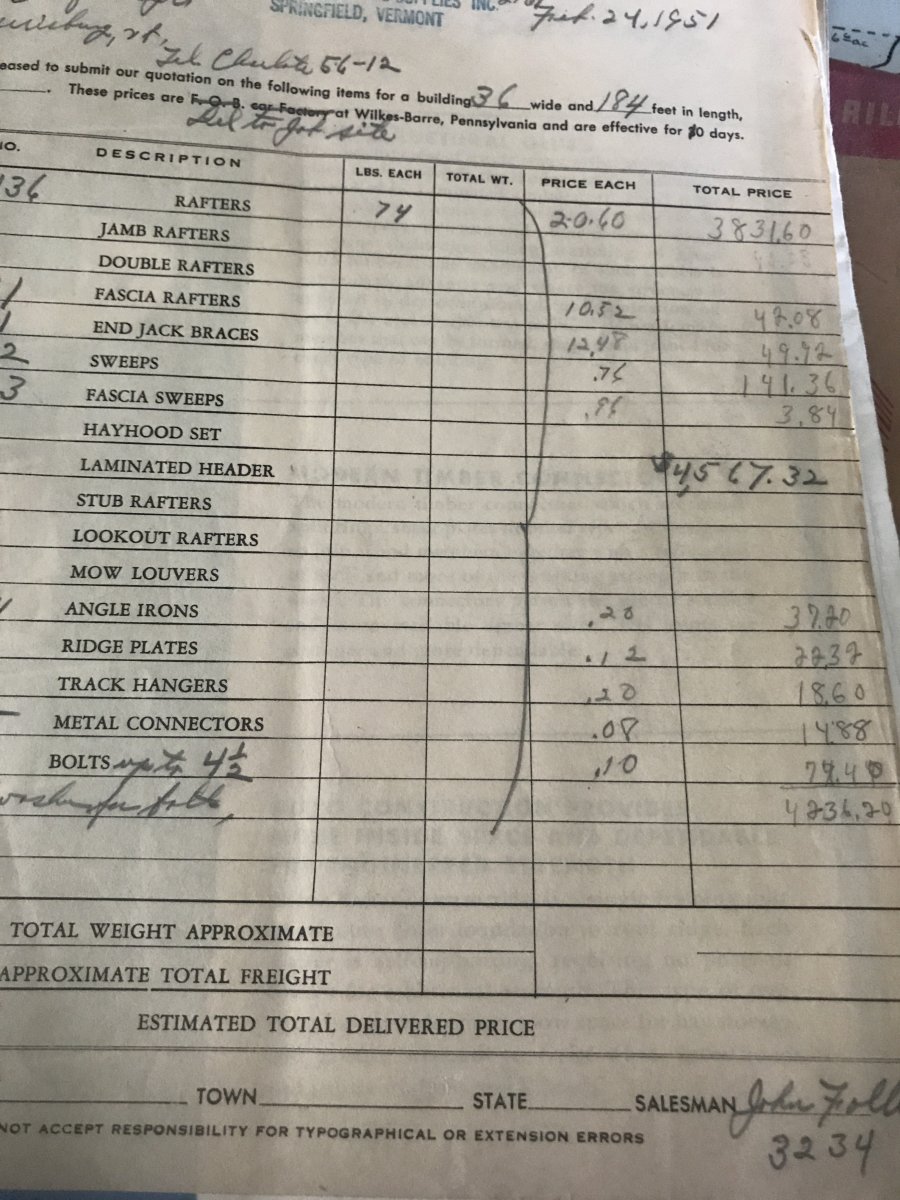 SUPPLIES INC.
SPRINGFIELD, VERMONT
Feb. 24, 1951
Tel. Charlotte 56-12
eased to submit our quotation on the following items for a building 36 wide and 184 feet in length,
These prices are F. O. B. car Factory at Wilkes-Barre, Pennsylvania and are effective for 10 days.
Del to Job site
NO. DESCRIPTION LBS. EACH TOTAL WT. PRICE EACH TOTAL PRICE
RAFTERS 74 20.60 3831.60
JAMB RAFTERS
DOUBLE RAFTERS
FASCIA RAFTERS 10.52 42.08
END JACK BRACES 12.48 49.92
SWEEPS .76 141.36
FASCIA SWEEPS .96 3.84
HAYHOOD SET
LAMINATED HEADER $4,567.32
STUB RAFTERS
LOOKOUT RAFTERS
MOW LOUVERS
ANGLE IRONS .20 37.20
RIDGE PLATES .12 22.32
TRACK HANGERS .20 18.60
METAL CONNECTORS .08 14.88
BOLTS up to 4½ .10 74.40
4236.20
TOTAL WEIGHT APPROXIMATE
APPROXIMATE TOTAL FREIGHT
ESTIMATED TOTAL DELIVERED PRICE
TOWN STATE SALESMAN John
NOT ACCEPT RESPONSIBILITY FOR TYPOGRAPHICAL OR EXTENSION ERRORS
3234